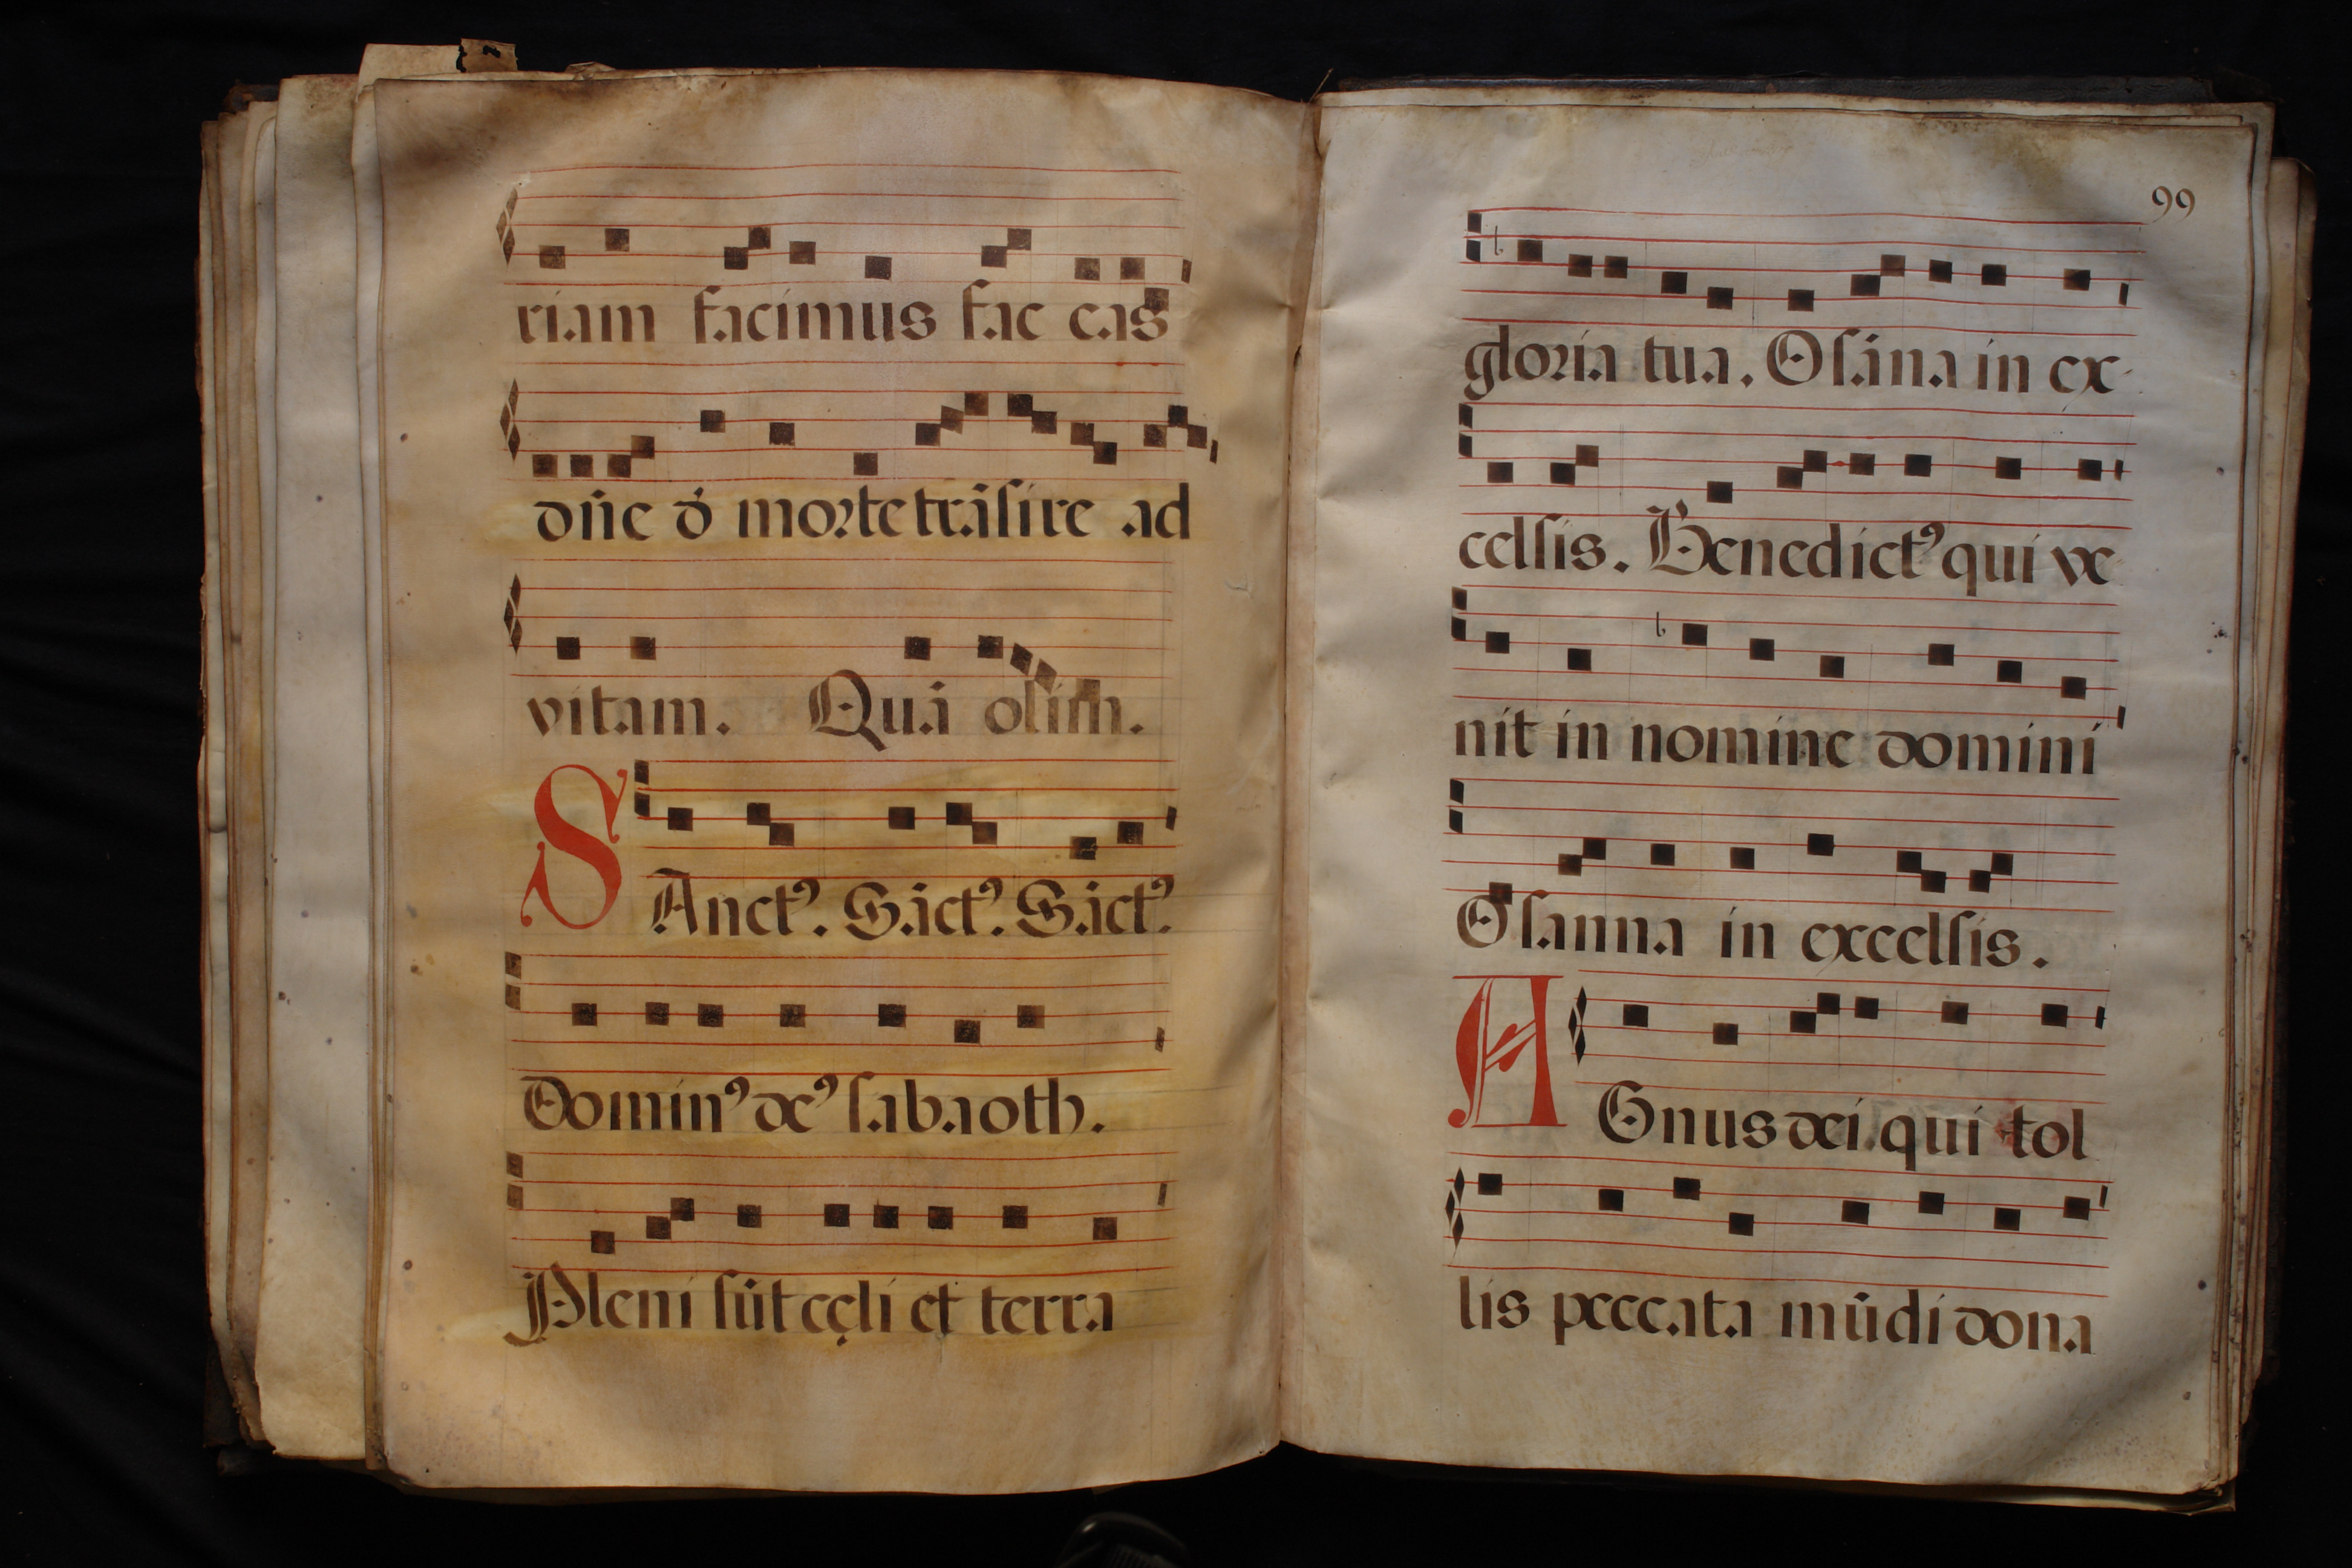 riam facimus fac cas
dñe ď morte trãsire ad
vitam. Quã olim.
SAnctꝰ. Sãctꝰ. Sãctꝰ.
Dominꝰ deꝰ sabaoth.
Pleni sũt cęli et terra
99
gloria tua. Osãna in ex
celsis. Benedictꝰ qui ve
nit in nomine domini
Osanna in excelsis.
AGnus dei. qui tol
lis peccata mũdi dona